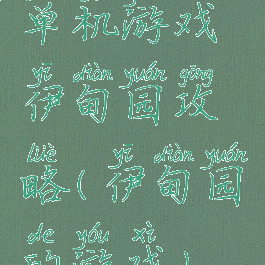 单机游戏
yī diàn yuán gōng
伊甸园攻
lüè yī diàn yuán
略(伊甸园
de yóu xì
的游戏)